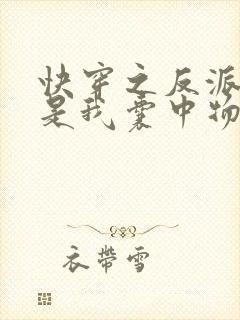 快穿之反派
是我囊中物
衣帶雪